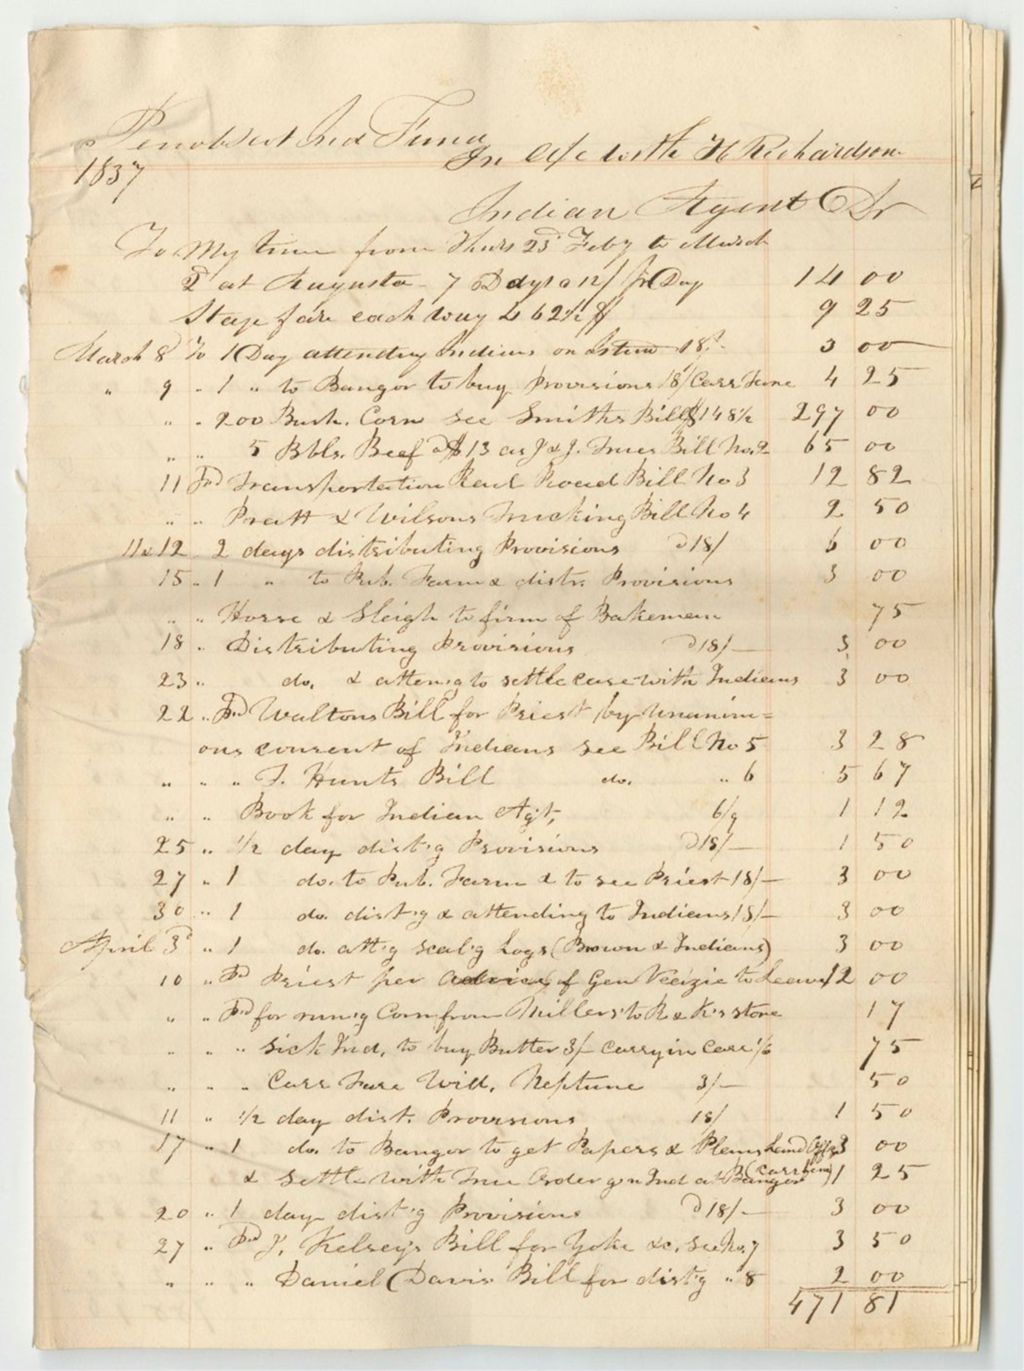 Penobscot Ind Fund
In a/c with H Richardson
1837
Indian Agent Dr
To My time from Thurs 23d Feby to March
2d at Augusta 7 Days a 12/ pr Day 14 00
Stage fare each way 4 62½ $ 9 25
March 8 To 1 Day attending Indians on 18/ 3 00
" 9 " 1 " to Bangor to buy Provisions 18/ Cars fare 4 25
" " 200 Bush. Corn see Smiths Bill $1 48½ 297 00
" " 5 Bbls. Beef a $13 as J & J. Trues Bill No. 2 65 00
11 Pd Transportation Rail Road Bill No 3 12 82
" " Pratt & Wilsons Trucking Bill No 4 2 50
11 & 12 2 days distributing Provisions a 18/ 6 00
15 " 1 " to Pub. Farm & distr. Provisions 3 00
" " Horse & Sleigh to firm of Bakeman 75
18 " Distributing Provisions a 18/- 3 00
23 " do. & atten'g to settle case with Indians 3 00
22 " Pd Waltons Bill for Priest by unanim=
ous consent of Indians see Bill No 5 3 28
" " " T. Hunts Bill do. " 6 5 67
" " Book for Indian Agt, 6/9 1 12
25 " ½ day dist'g Provisions a 18/- 1 50
27 " 1 do. to Pub. Farm & to see Priest 18/- 3 00
30 " 1 do. dist'g & attending to Indians 18/- 3 00
April 3d " 1 do. att'g scal'g Logs (Brown & Indians) 3 00
10 " Pd Priest per advice of Gen Veazie to Leave 12 00
" " Pd for run'g Corn from Millers to R & K's store 17
" " " Sick Ind. to buy Butter 3/- carry in Cars 1/6 75
" " " Cars Fare Will. Neptune 3/- 50
11 " ½ day dist. Provisions 18/ 1 50
17 " 1 do. to Bangor to get Papers & Plans Land Office 3 00
& settle with True Order gn Ind at Bangor (cars fare) 1 25
20 " 1 day dist'g Provisions a 18/- 3 00
27 " Pd J. Kelsey's Bill for Yoke &c. See No. 7 3 50
" " " Daniel Davis Bill for dist'g " 8 2 00
471 81